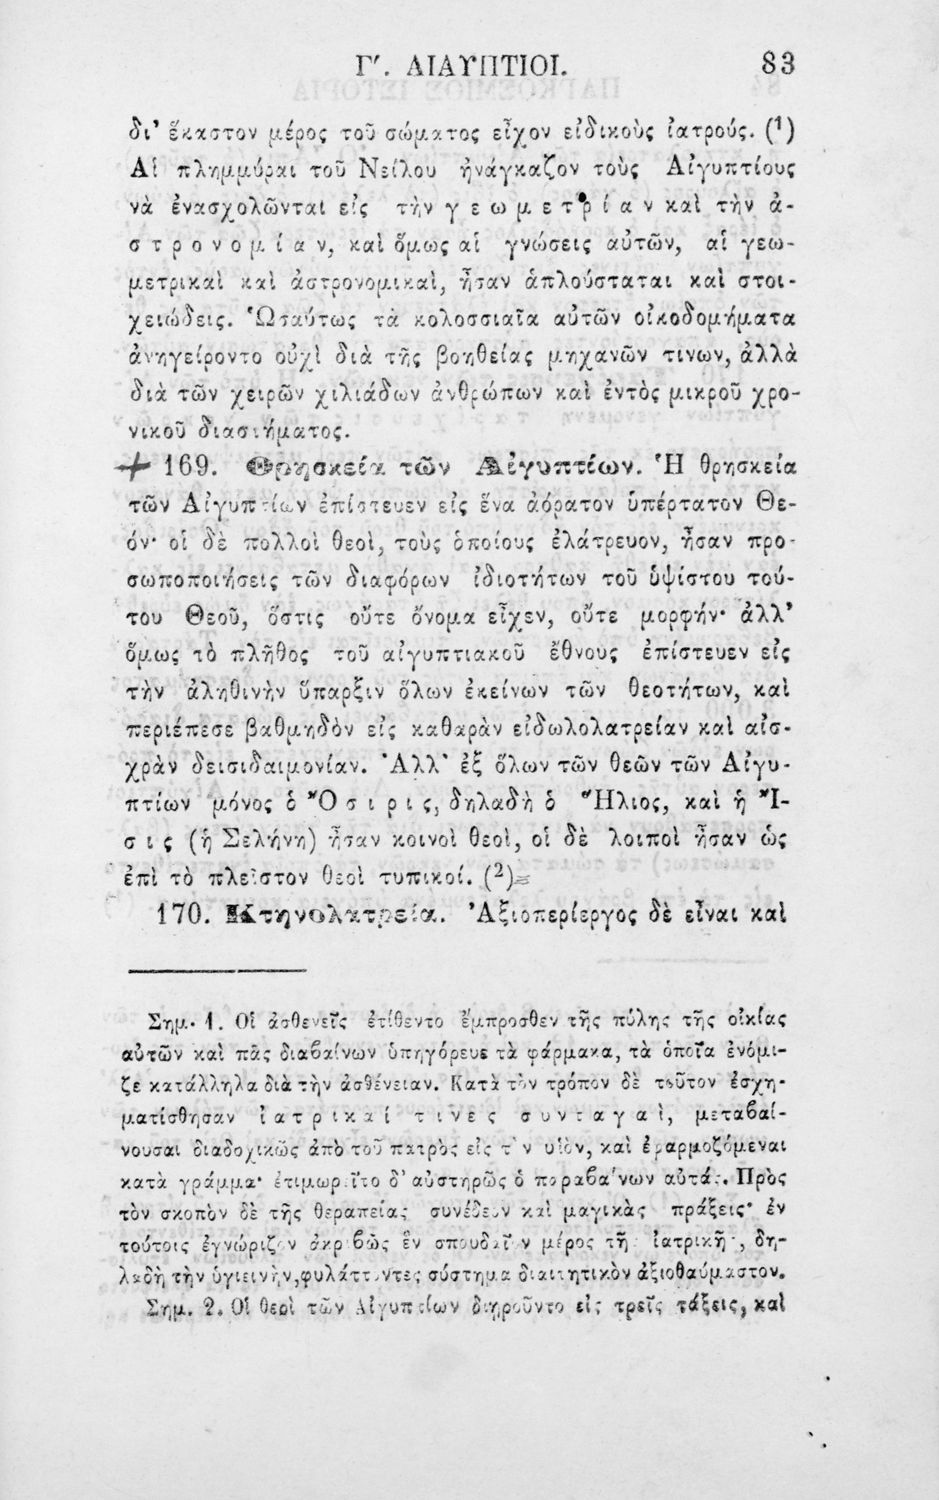 Γ'. ΑΙΑΥΠΤΙΟΙ. 83
δι' ἕκαστον μέρος τοῦ σώματος εἶχον εἰδικοὺς ἰατρούς. (1)
Αἱ πλημμύραι τοῦ Νείλου ἠνάγκαζον τοὺς Αἰγυπτίους
νὰ ἐνασχολῶνται εἰς τὴν γ ε ω μ ε τ ρ ί α ν καὶ τὴν ἀ-
σ τ ρ ο ν ο μ ί α ν, καὶ ὅμως αἱ γνώσεις αὐτῶν, αἱ γεω-
μετρικαὶ καὶ ἀστρονομικαὶ, ἦσαν ἁπλούσταται καὶ στοι-
χειώδεις. Ὡσαύτως τὰ κολοσσιαῖα αὐτῶν οἰκοδομήματα
ἀνηγείροντο οὐχὶ διὰ τῆς βοηθείας μηχανῶν τινων, ἀλλὰ
διὰ τῶν χειρῶν χιλιάδων ἀνθρώπων καὶ ἐντὸς μικροῦ χρο-
νικοῦ διαστήματος.
169. Θρησκεία τῶν Αἰγυπτίων. Ἡ θρησκεία
τῶν Αἰγυπτίων ἐπίστευεν εἰς ἕνα ἀόρατον ὑπέρτατον Θε-
όν· οἱ δὲ πολλοὶ θεοὶ, τοὺς ὁποίους ἐλάτρευον, ἦσαν προ-
σωποποιήσεις τῶν διαφόρων ἰδιοτήτων τοῦ ὑψίστου τού-
του Θεοῦ, ὅστις οὔτε ὄνομα εἶχεν, οὔτε μορφήν· ἀλλ'
ὅμως τὸ πλῆθος τοῦ αἰγυπτιακοῦ ἔθνους ἐπίστευεν εἰς
τὴν ἀληθινὴν ὕπαρξιν ὅλων ἐκείνων τῶν θεοτήτων, καὶ
περιέπεσε βαθμηδὸν εἰς καθαρὰν εἰδωλολατρείαν καὶ αἰσ-
χρὰν δεισιδαιμονίαν. Ἀλλ' ἐξ ὅλων τῶν θεῶν τῶν Αἰγυ-
πτίων μόνος ὁ Ὄ σ ι ρ ι ς, δηλαδὴ ὁ Ἥλιος, καὶ ἡ Ἴ-
σ ι ς (ἡ Σελήνη) ἦσαν κοινοὶ θεοὶ, οἱ δὲ λοιποὶ ἦσαν ὡς
ἐπὶ τὸ πλεῖστον θεοὶ τυπικοί. (2)
170. Κτηνολατρεία. Ἀξιοπερίεργος δὲ εἶναι καὶ
Σημ. 1. Οἱ ἀσθενεῖς ἐτίθεντο ἔμπροσθεν τῆς πύλης τῆς οἰκίας
αὐτῶν καὶ πᾶς διαβαίνων ὑπηγόρευε τὰ φάρμακα, τὰ ὁποῖα ἐνόμι-
ζε κατάλληλα διὰ τὴν ἀσθένειαν. Κατὰ τὸν τρόπον δὲ τοῦτον ἐσχη-
ματίσθησαν ἰ α τ ρ ι κ α ί τ ι ν ε ς σ υ ν τ α γ α ὶ, μεταβαί-
νουσαι διαδοχικῶς ἀπὸ τοῦ πατρὸς εἰς τὸν υἱὸν, καὶ ἐφαρμοζόμεναι
κατὰ γράμμα· ἐτιμωρεῖτο δ' αὐστηρῶς ὁ παραβαίνων αὐτάς. Πρὸς
τὸν σκοπὸν δὲ τῆς θεραπείας συνέδεον καὶ μαγικὰς πράξεις· ἐν
τούτοις ἐγνώριζον ἀκριβῶς ἓν σπουδαῖον μέρος τῆς ἰατρικῆς, δη-
λαδὴ τὴν ὑγιεινὴν, φυλάττοντες σύστημα διαιτητικὸν ἀξιοθαύμαστον.
Σημ. 2. Οἱ θεοὶ τῶν Αἰγυπτίων διῃροῦντο εἰς τρεῖς τάξεις, καὶ